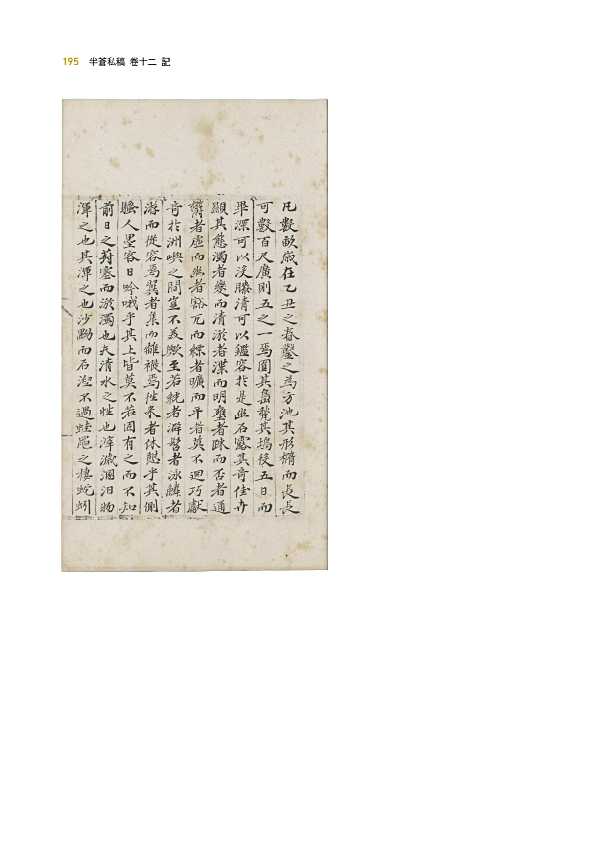 195 半蒼私稿 卷十二 記
凡數畝歲在乙丑之春鑿之為方池其形橢而長
可數百尺廣則五之一焉圜其其塢後五日而
畢深可以沒膝清可以鑑容於是幽石露其奇佳卉
顯其態濁者變而清淤者渫而明壅者疎而否者通
者虛而幽者豁兀而縹者曠而平者莫不迴巧獻
奇於洲嶼之間豈不美歟至若毨者澼髻者泳鱗者
游而從容焉翼者集而雜襍焉徃来者休憇乎其側
騷人墨客日吟哦乎其上皆莫不若固有之而不知
前日之荷塞而淤濁也夫清水之性也滓濊溷汨物
渾之也其渾之也沙黝而石涅不過蛙黽之棲蛇蚓